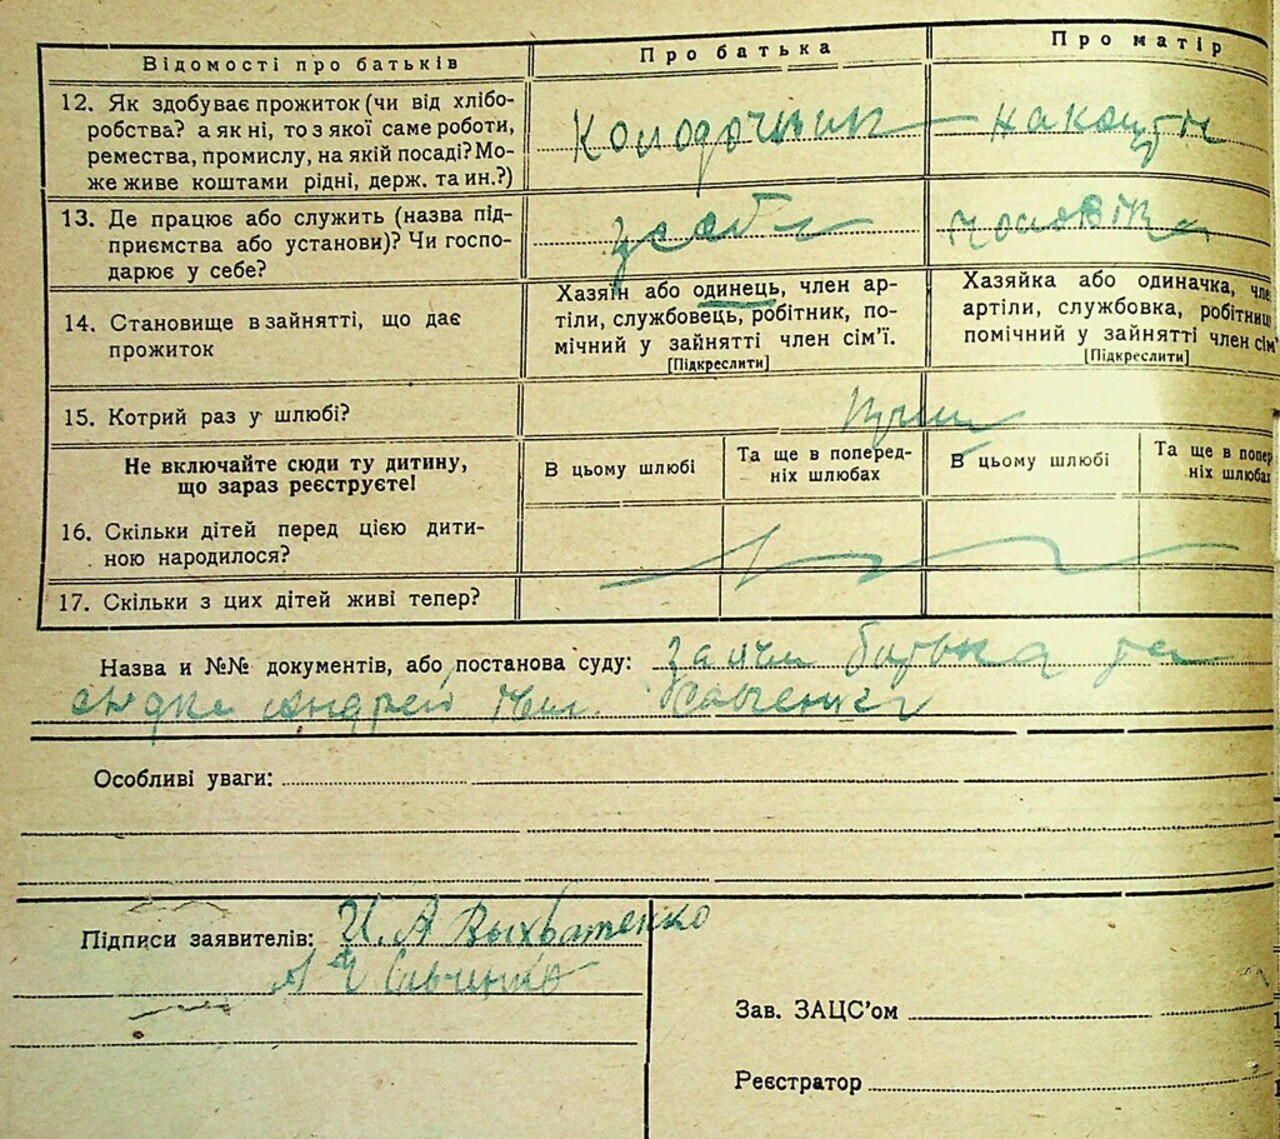 Відомості про батьків
Про батька
Про матір
12. Як здобуває прожиток (чи від хлібо-
робства? а як ні, то з якої саме роботи,
ремества, промислу, на якій посаді? Мо-
же живе коштами рідні, держ. та ин.?)
Колодочник
на кошти
13. Де працює або служить (назва під-
приємства або установи)? Чи госпо-
дарює у себе?
у себе
чоловіка
14. Становище в зайнятті, що дає
прожиток
Хазяїн або одинець, член ар-
тілі, службовець, робітник, по-
мічний у зайнятті член сім’ї.
[Підкреслити]
Хазяйка або одиначка, чле
артіли, службовка, робітниц
помічний у зайнятті член сім’
[Підкреслити]
15. Котрий раз у шлюбі?
Не включайте сюди ту дитину,
що зараз реєструєте!
В цьому шлюбі
Та ще в поперед-
ніх шлюбах
В цьому шлюбі
Та ще в попер
ніх шлюбах
16. Скільки дітей перед цією дити-
ною народилося?
17. Скільки з цих дітей живі тепер?
Назва и №№ документів, або постанова суду: заяви батька та
Андрей Савченка
Особливі уваги:
Підписи заявителів: И. А Выхватенко
А Савченко
Зав. ЗАЦС’ом
Реєстратор